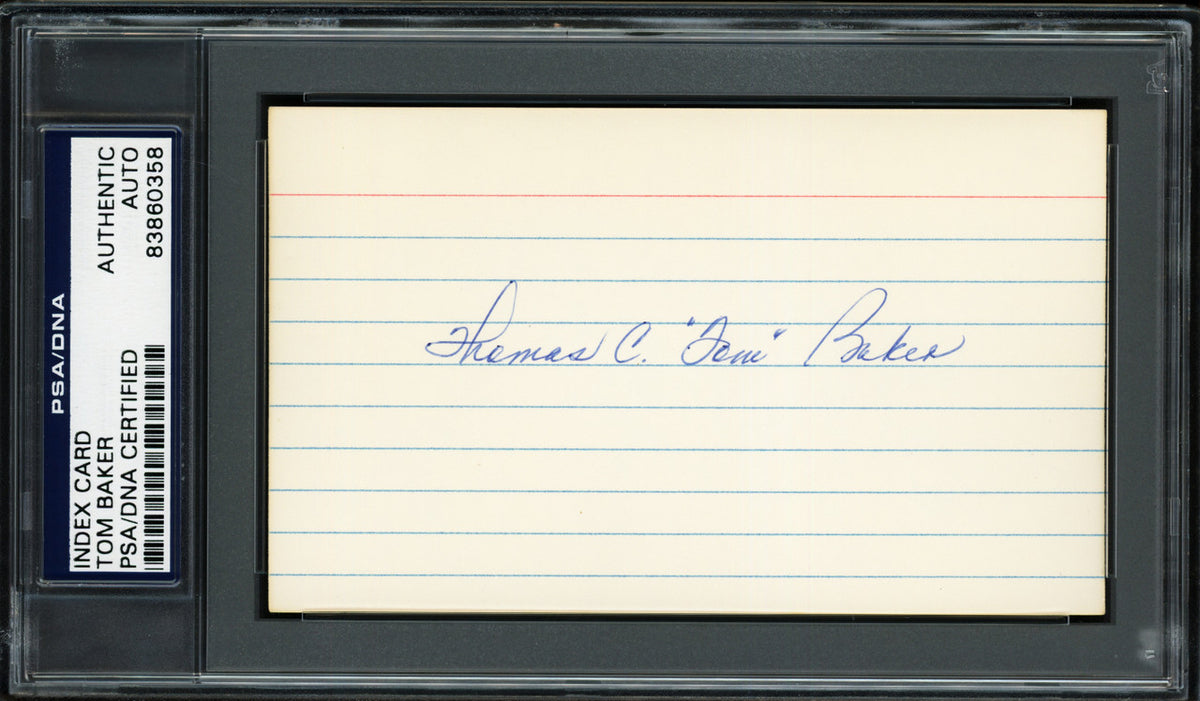 PSA/DNA
INDEX CARD
TOM BAKER
PSA/DNA CERTIFIED
AUTHENTIC
AUTO
83860358
Thomas C. "Tom" Baker